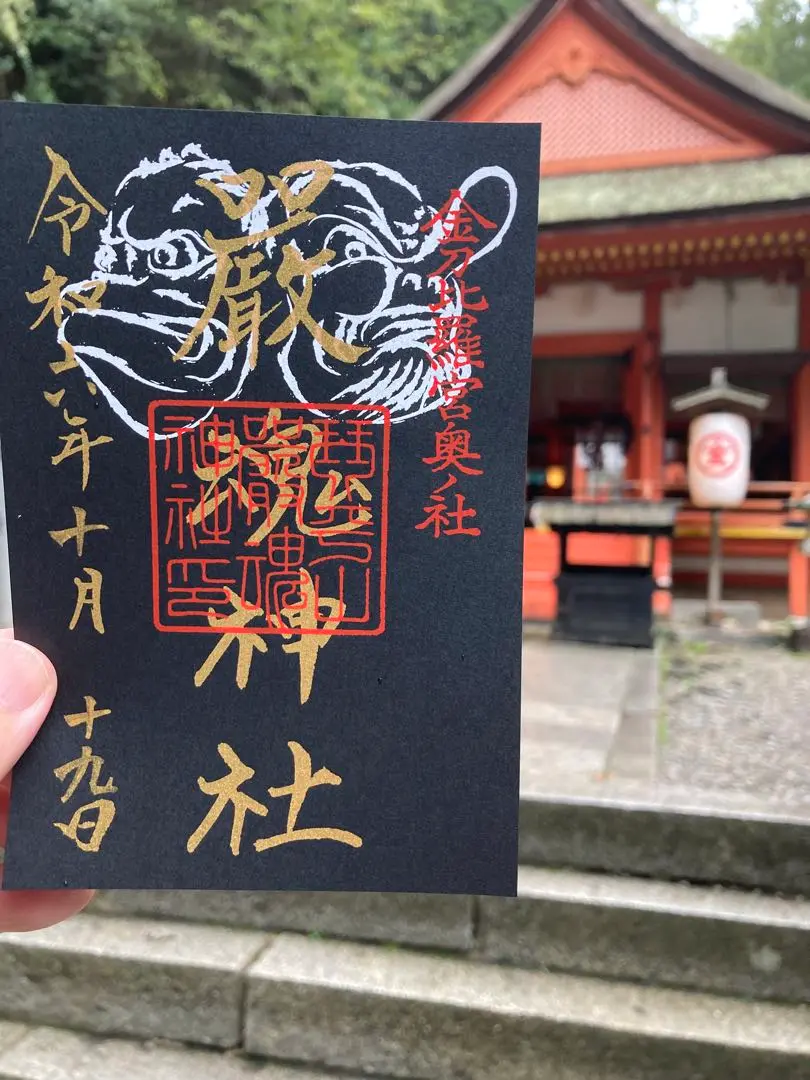 金刀比羅宮奥ノ社
嚴魂神社
琴平山
嚴魂
神社印
令和六年十月 十九日
金